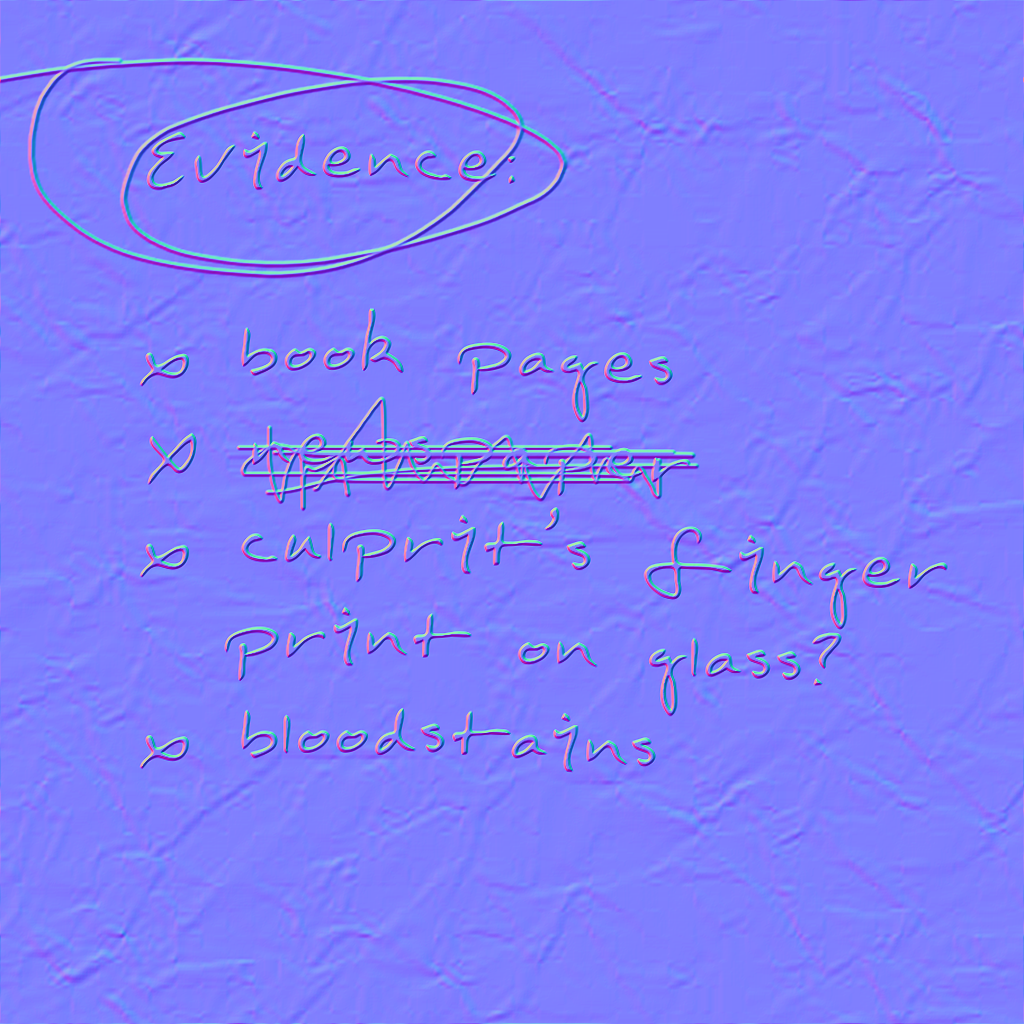 Evidence:
x book pages
x newspaper
x culprit's finger
print on glass?
x bloodstains